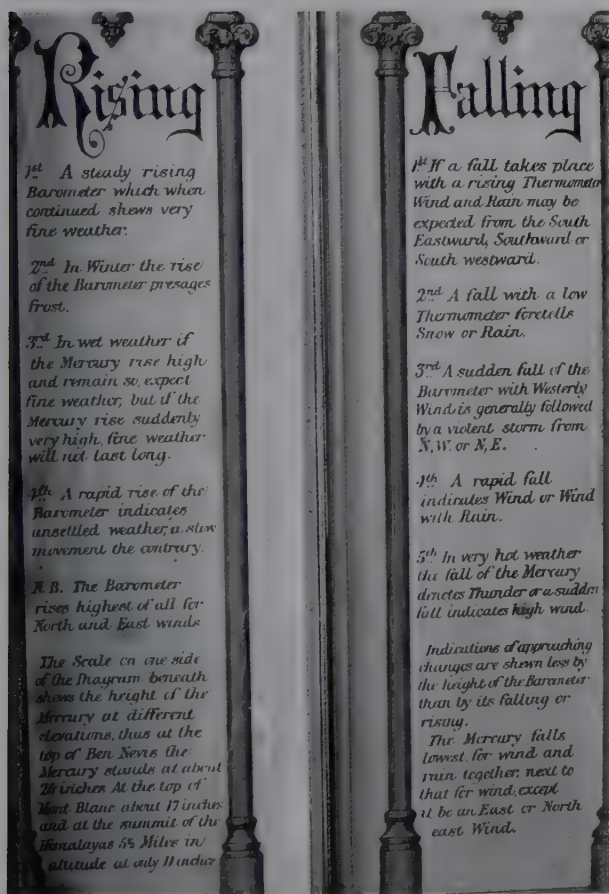 Rising
1st A steady rising
Barometer which when
continued shews very
fine weather.
2nd In Winter the rise
of the Barometer presages
frost.
3rd In wet weather if
the Mercury rise high
and remain so, expect
fine weather, but if the
Mercury rise suddenly
very high, fine weather
will not last long.
4th A rapid rise of the
Barometer indicates
unsettled weather, a slow
movement the contrary.
N.B. The Barometer
rises highest of all for
North and East winds
The Scale on one side
of the Diagram beneath
shows the height of the
Mercury at different
elevations, thus at the
top of Ben Nevis the
Mercury stands at about
26 inches At the top of
Mont Blanc about 17 inches
and at the summit of the
Himalayas 5½ Miles in
altitude at only 11 inches
Falling
1st If a fall takes place
with a rising Thermometer
Wind and Rain may be
expected from the South
Eastward, Southward or
South westward.
2nd A fall with a low
Thermometer foretells
Snow or Rain.
3rd A sudden fall of the
Barometer with Westerly
Wind is generally followed
by a violent storm from
N,W. or N,E.
4th A rapid fall
indicates Wind or Wind
with Rain.
5th In very hot weather
the fall of the Mercury
denotes Thunder or a sudden
fall indicates high wind.
Indications of approaching
changes are shewn less by
the height of the Barometer
than by its falling or
rising.
The Mercury falls
lowest for wind and
rain together, next to
that for wind, except
it be an East or North
east Wind.